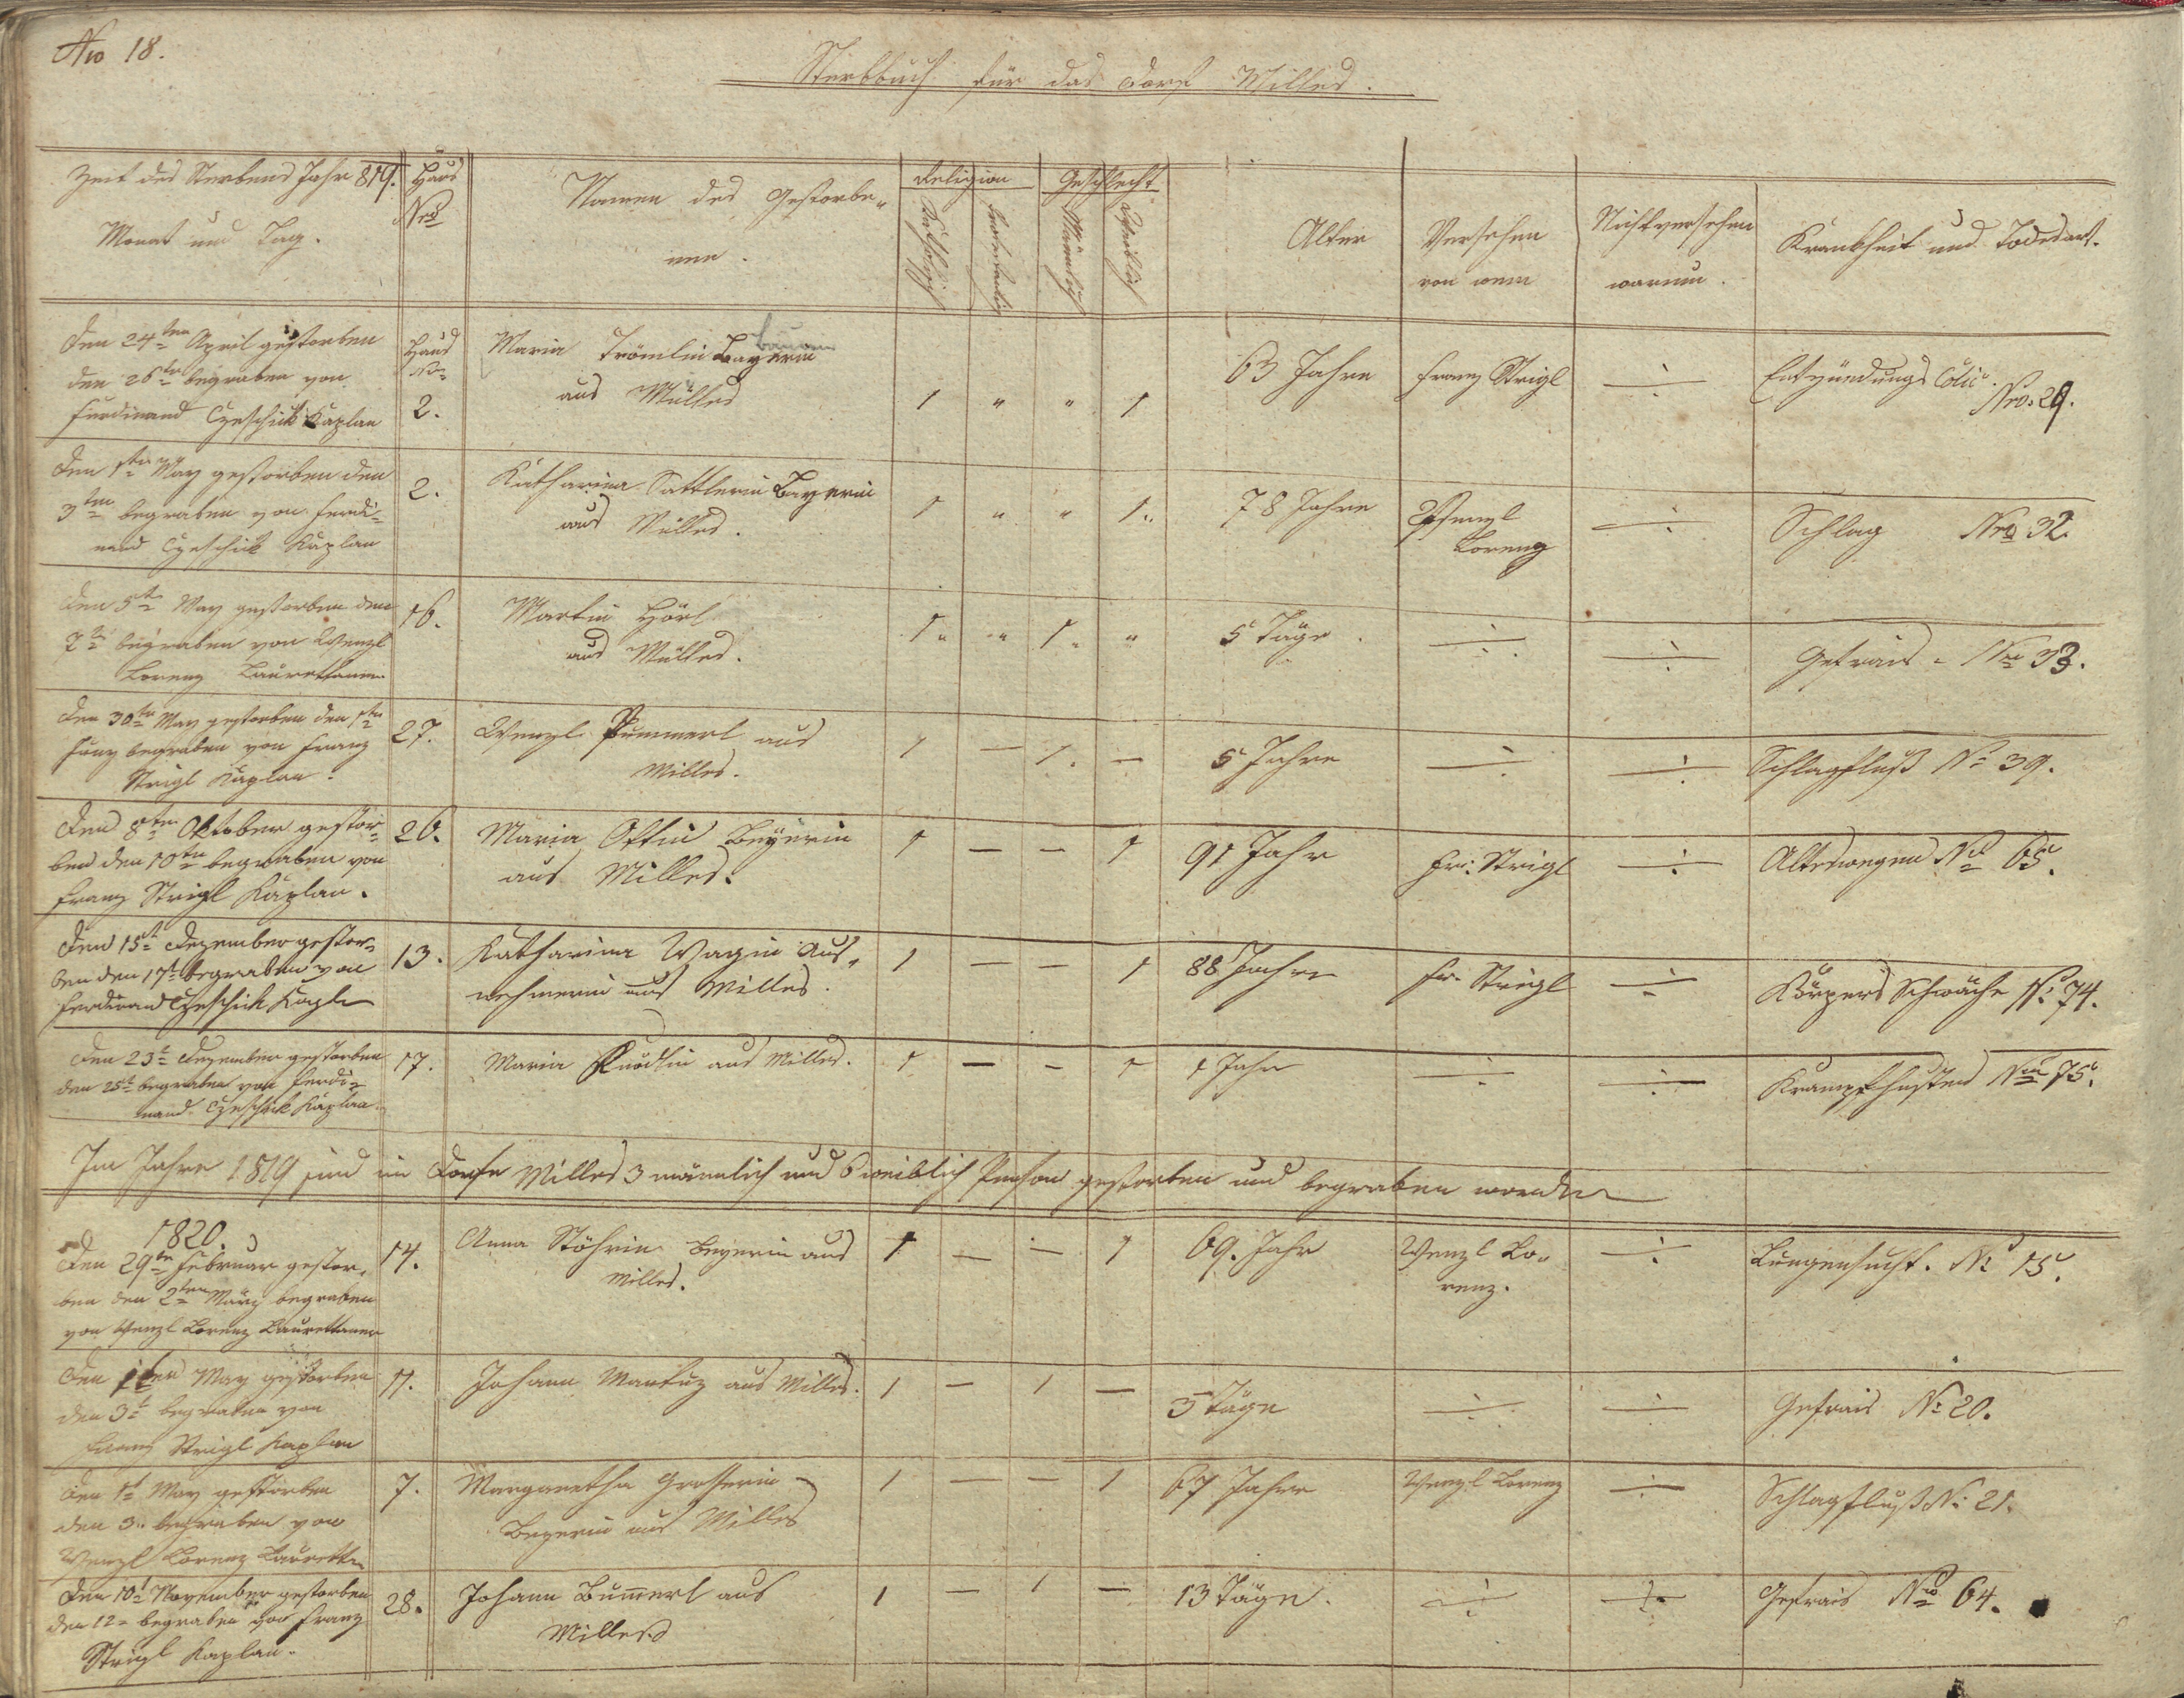 Nro 18.
Sterbbuch für das Dorf Milles.
Zeit des Sterbens Jahr 819.
Monat und Tag.
Haus
Nro
Namen des Gestorbe„
nen.
Religion
Katholisch
Geschlecht
Männlich
Weiblich
Alter
Versehen
von wem
Nichtversehen
warum.
Krankheit und Todesart.
Den 24ten April gestorben
den 26ten begraben von
Ferdinand Czeschick Kaplan
Haus
Nro
2.
Maria Trömlin Bayerin
aus Milles
1 „ „ 1
63 Jahre
Franz Strigl
÷
Entzündungs Colic.
Nro. 29.
Den 1ten May gestorben den
3ten begraben von Ferdi=
nand Czeschick Kaplan
2.
Katharina Sattlerin Bayerin
aus Milles.
1 „ „ 1„
78 Jahre
Wenzl
Lorenz
÷
Schlag Nro 32.
Den 5te May gestorben den
7te begraben von Wenzl
Lorenz Laurettaner
16.
Martin Hörl
aus Milles.
1„ „ 1„ „
5 Täge.
÷
÷
Gefrais - Nro 33.
Den 30ten May gestorben den 1ten
Juny begraben von Franz
Strigl Kaplan.
27.
Wenzl Pummerl aus
Milles.
1 — 1. —
5 Jahre
÷
÷
Schlagfluß No 39.
Den 8ten Oktober gestor=
ben den 10ten begraben von
Franz Strigl Kaplan.
26.
Maria Ottin Beyerin
aus Milles.
1 — — 1
91 Jahr
Fr: Strigl
÷
Alterwegen No 65.
Den 15t Dezember gestor=
ben den 17t begraben von
Ferdinand Czeschick Kapln
13.
Katharina Wagin Aus„
nehmerin aus Milles.
1 — — 1
88 Jahre
Fr. Strigl
÷
Körpers Schwäche No 74.
Den 23t Dezember gestorben
den 25t begraben von Ferdi=
nand Czeschick Kaplan
17.
Maria aus Milles.
1 — — 1
1 Jahr
÷
÷
Krampfhusten Nro 75.
Im Jahre 1819 sind im Dorfe Milles 3 männlich und 6 weiblich Person gestorben und begraben worden
1820.
Den 29ten Februar gestor„
ben den 2ten März begraben
von Wenzl Lorenz Laurettaner
14.
Anna Stöhrin Beyerin aus
Milles.
1 — — 1
69. Jahr
Wenzl Lo„
renz.
÷
Lungensucht. No 15.
Den 1ten May gestorben
den 3t begraben von
Franz Strigl Kaplan
11.
Johann aus Milles.
1 — 1 —
3 Täge
÷
÷
Gefrais No 20.
Den 1t May gestorben
den 3. begraben von
Wenzl Lorenz Laurettn
7.
Margaretha Grasserin
Beyerin aus Milles
1 — — 1
67 Jahre
Wenzl Lorenz
÷
Schlagfluß No 21.
Den 10t November gestorben
den 12= begraben von Franz
Strigl Kaplan.
28.
Johann Bum̅erl aus
Milles
1 — 1 —
13 Täge.
÷
÷
Gefrais Nro 64.